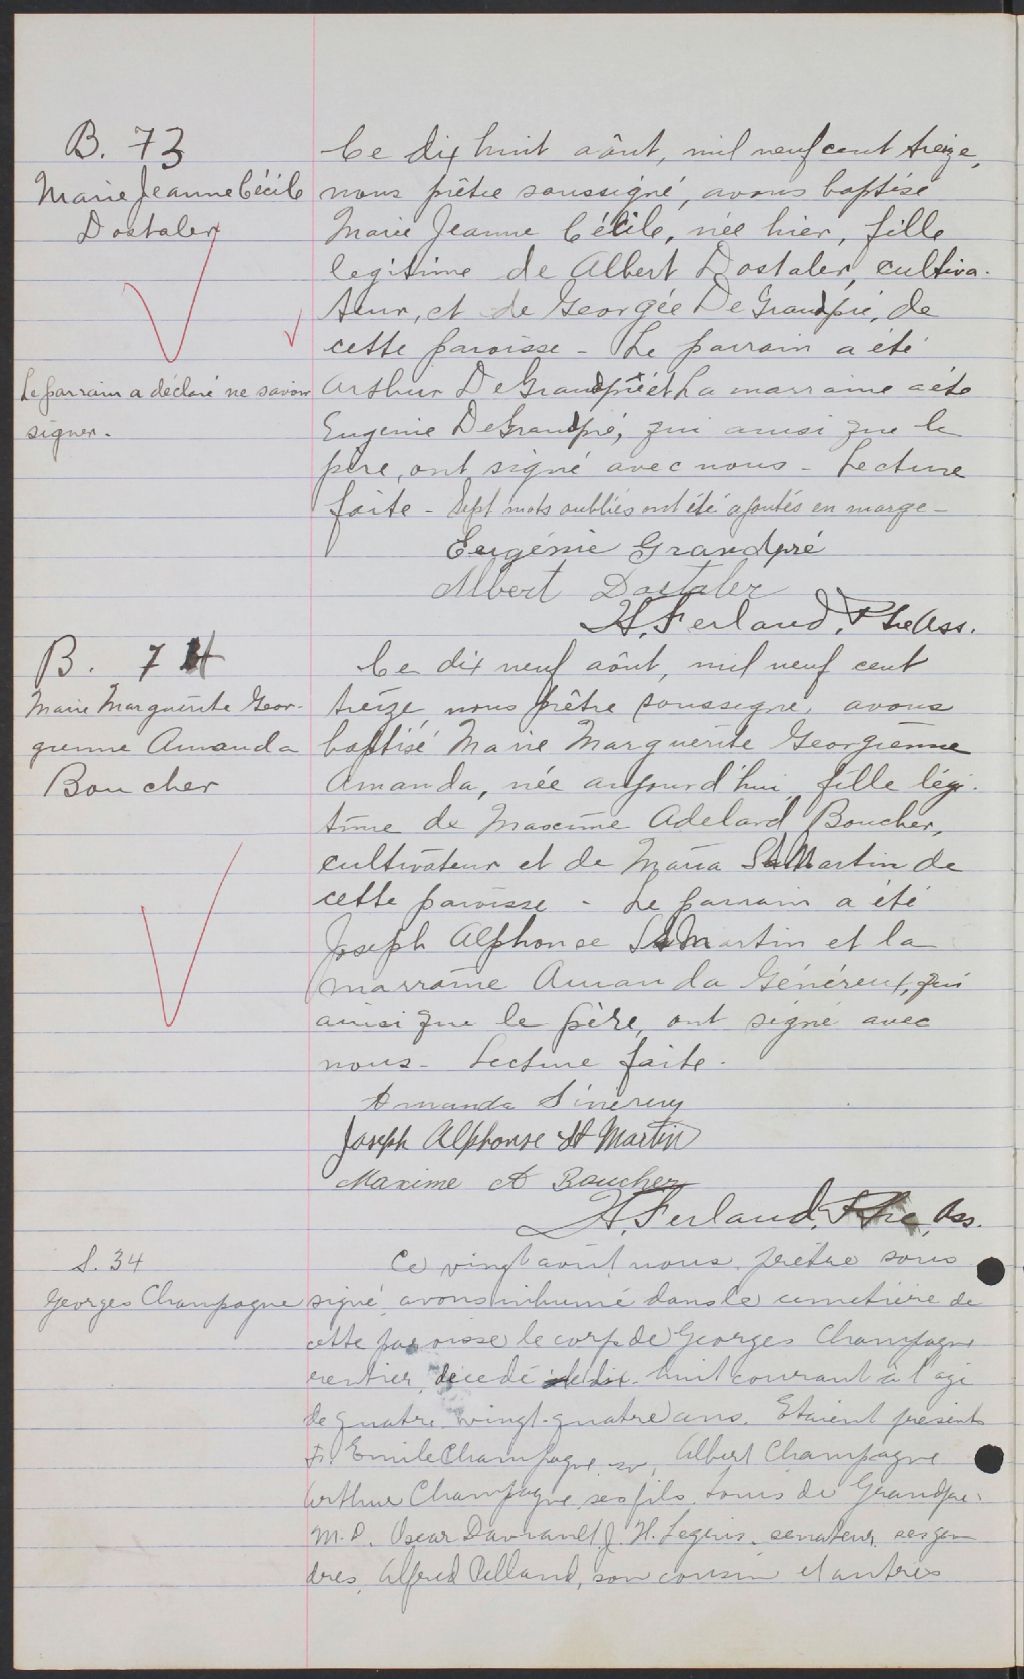 B. 73
Marie Jeanne Cécile
Dostaler
Le parrain a déclaré ne savoir
signer.
Ce dix huit août, mil neuf cent treize,
nous prêtre soussigné, avons baptisé
Marie Jeanne Cécile, née hier, fille
legitime de Albert Dostaler, cultiva-
teur, et de Georgée DeGrandpré, de
cette paroisse - Le parrain a été
Arthur DeGrandpré et La marraine a été
Eugenie DeGrandpré, qui ainsi que le
père, ont signé avec nous - Lecture
faite - Sept mots oubliés ont été ajoutés en marge -
Eugénie Grandpré
Albert Dostaler
H. Ferland, Ptre Ass.
B. 74
Marie Marguerite Geor-
gienne Amanda
Boucher
Ce dix neuf août, mil neuf cent
treize, nous prêtre soussigné, avons
baptisé Marie Marguerite Georgienne
Amanda, née aujourd'hui, fille légi-
time de Maxime Adelard Boucher,
cultivateur et de Maria St Martin de
cette paroisse - Le parrain a été
Joseph Alphonse St Martin et la
marraine Amanda Généreux, qui
ainsi que le père, ont signé avec
nous - Lecture faite.
Amanda Généreux
Joseph Alphonse St Martin
Maxime A Boucher
H. Ferland, Ptre, Ass.
S. 34
Georges Champagne
Ce vingt août nous prêtre sous
signé avons inhumé dans le cimetière de
cette paroisse le corps de Georges Champagne
rentier, décédé le dix-huit courant à l'age
de quatre vingt-quatre ans. Etaient présents
Emile Champagne Albert Champagne
Arthur Champagne ses fils. Louis de Grandpré
M.D. Oscar J. H. Legris, senateur, ses gen
dres, Alfred Pelland, son cousin et autres